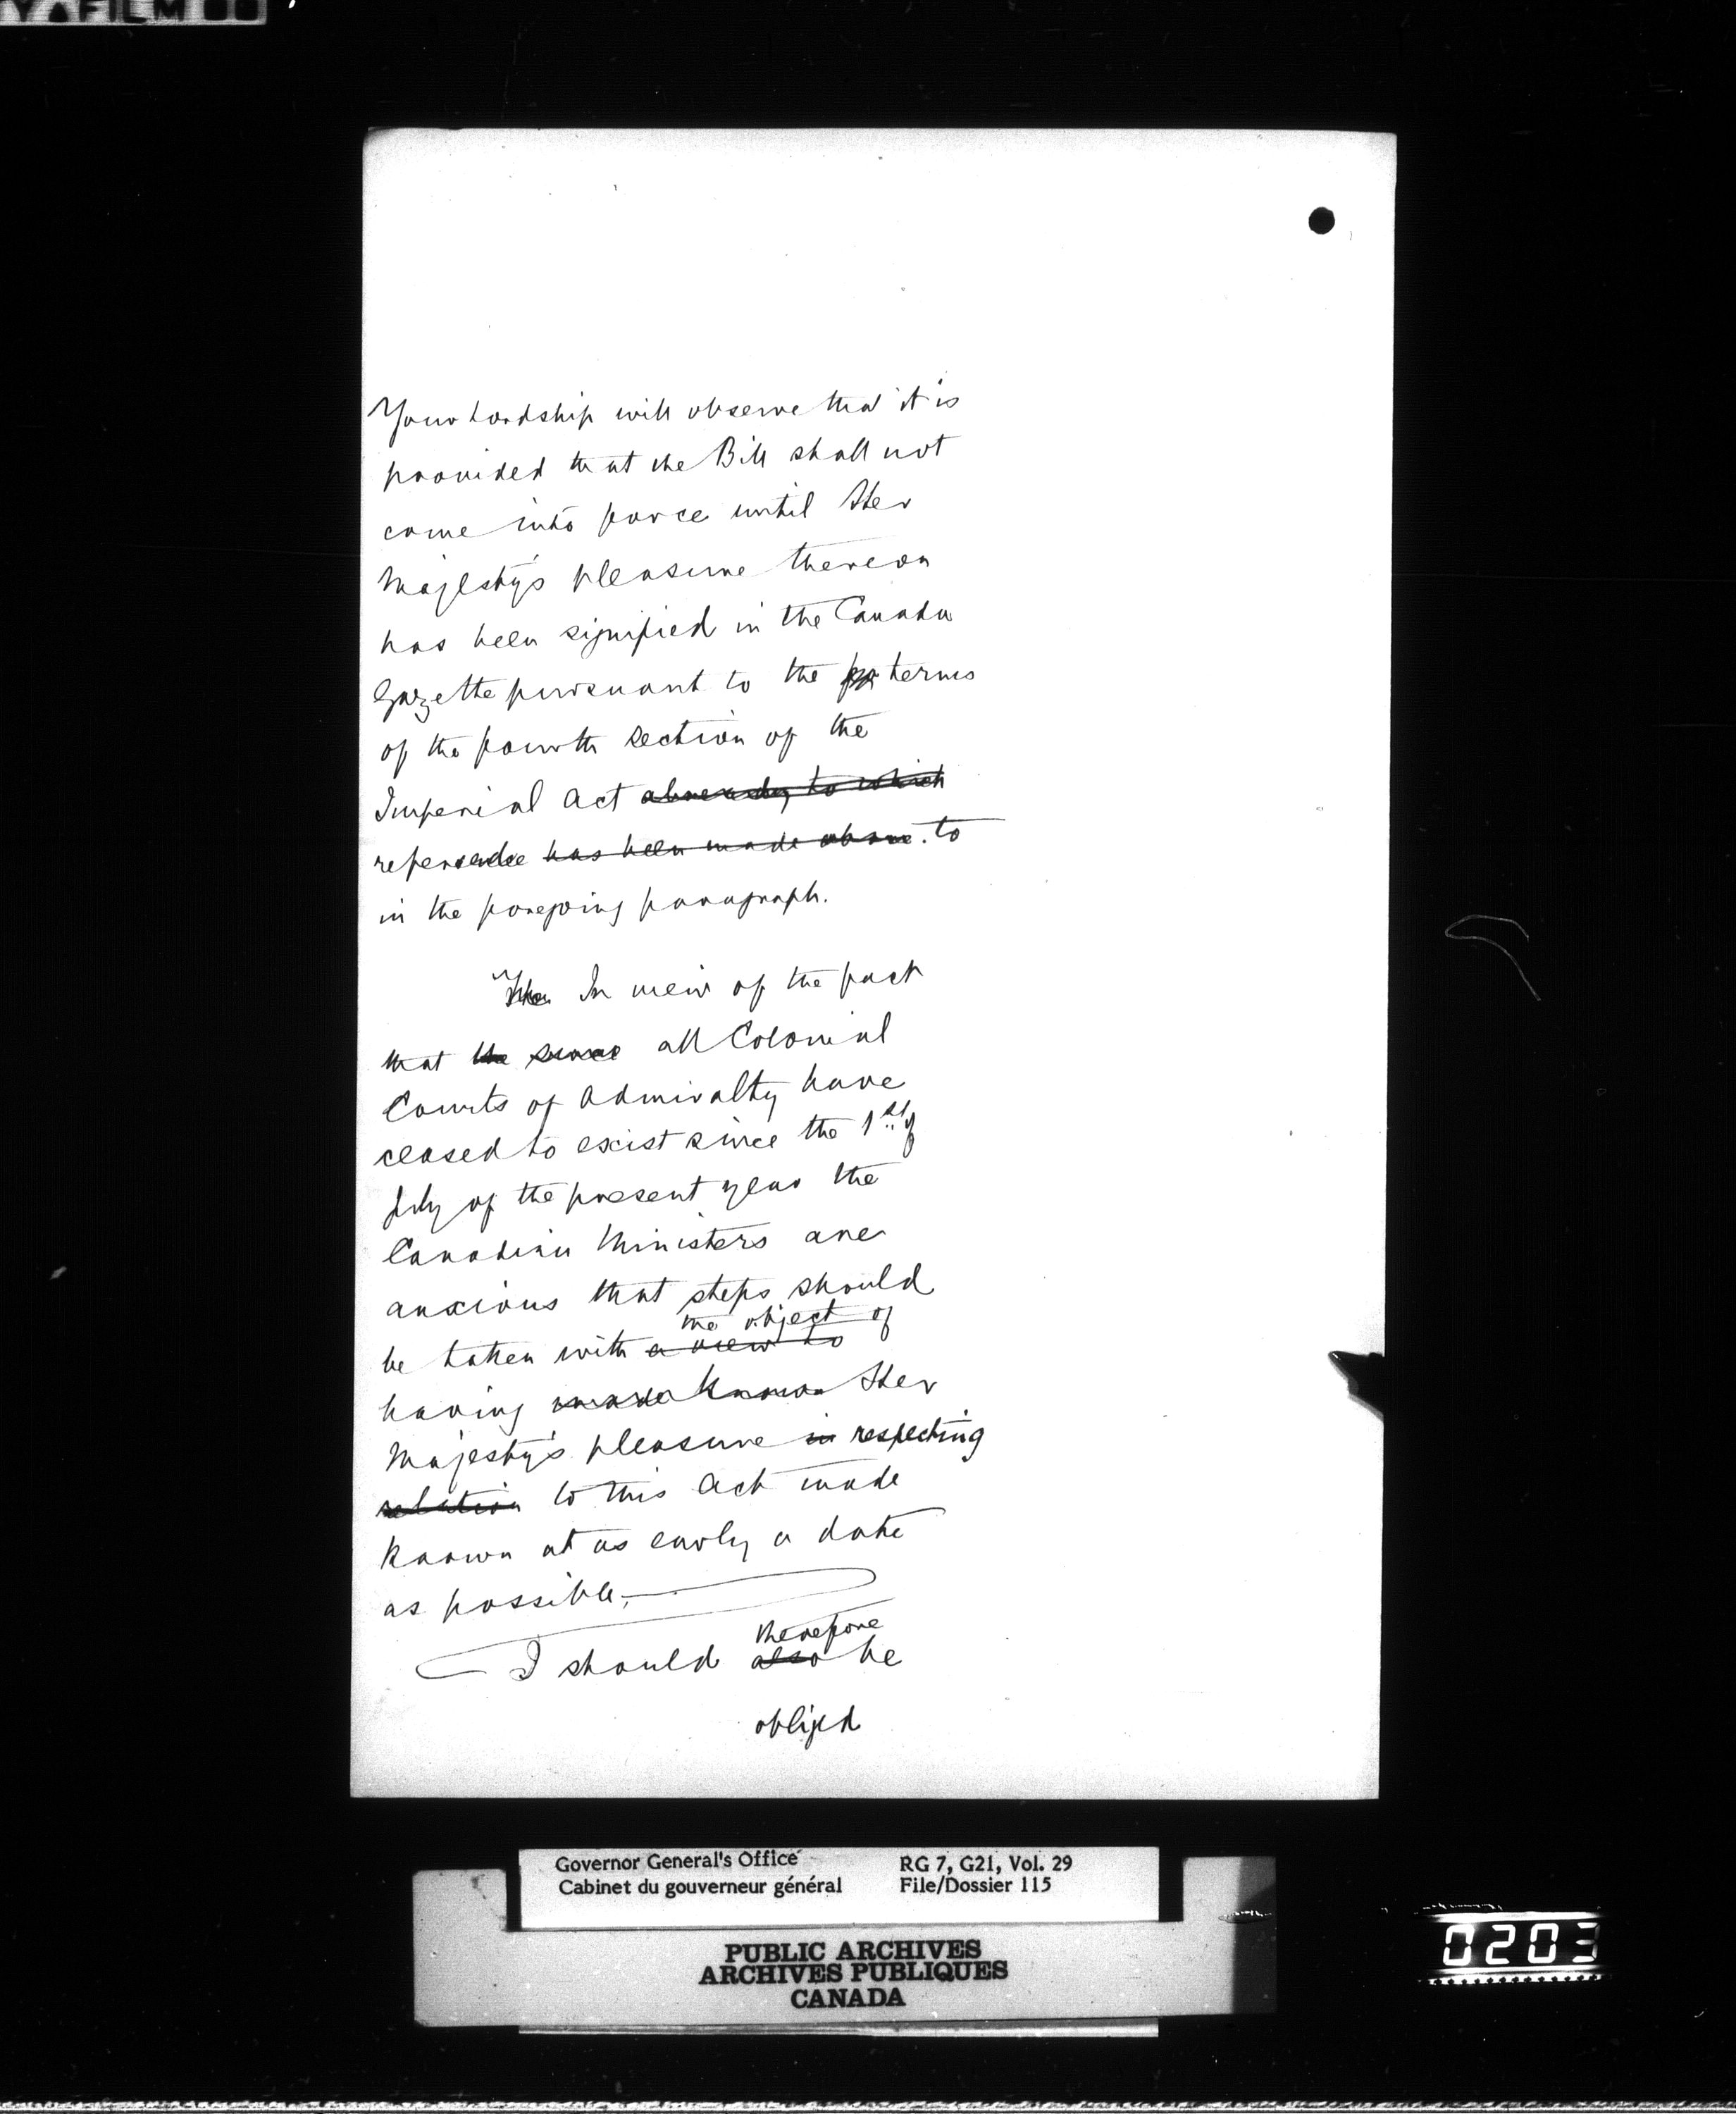 Your Lordship will observe that it is
provided that the Bill shall not
come into force until Her
Majesty's pleasure thereon
has been signified in the Canada
Gazette pursuant to the terms
of the fourth section of the
Imperial Act already to which
reference has been made above. to
in the foregoing paragraph.
The In view of the fact
that the since all Colonial
Courts of Admiralty have
ceased to exist since the 1st of
July of the present year the
Canadian Ministers are
anxious that steps should
the object of
be taken with a view to
having made known Her
Majesty's pleasure in respecting
relation to this Act made
known at as early a date
as possible,
therefore
I should also be
obliged
Governor General's Office
Cabinet du gouverneur général
RG 7, G21, Vol. 29
File/Dossier 115
PUBLIC ARCHIVES
ARCHIVES PUBLIQUES
CANADA
0203